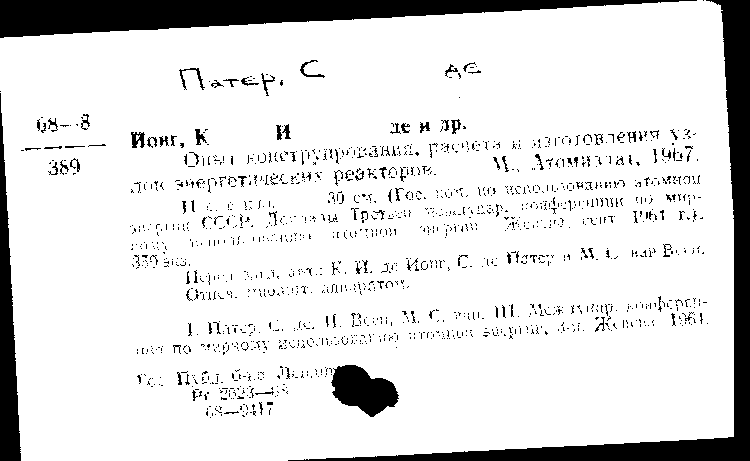 Патер, С де
68—8
389
Ионг, К И де и др.
Опыт конструирования, расчета и изготовления уз-
лов энергетических реакторов. М., Атомиздат, 1967.
с. 30 см. (Гос. ком. по использованию атомной
энергии СССР. Доклады Третьей междунар. конференции по мир-
ному использованию атомной энергии Женева, сент 1964 г.).
350 экз.
Перед загл. авт.: К. И. де Ионг, С. де Патер и М. С. ван Веен.
Отпеч. множит. аппаратом.
I. Патер, С. де. II. Веен, М. С. ван. III. Междунар. конферен-
ция по мирному использованию атомной энергии, 3-я. Женева. 1964.
Гос. Публ. б-ка Ленин
Рг 2623—68
68—9417